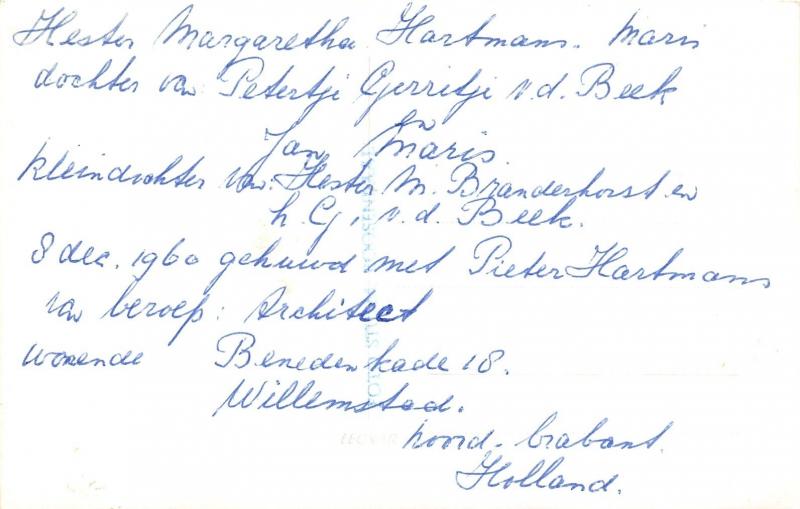 Hester Margaretha Hartmans. Maris
dochter van Petertje Gerritje v.d. Beek
en
Jan Maris.
kleindochter van: Hester M. Branderhorst en
h. G. v.d. Beek.
8 dec. 1960 gehuwd met Pieter Hartmans
van beroep: Architect
wonende Benedenkade 18.
Willemstad.
Noord-brabant.
Holland.